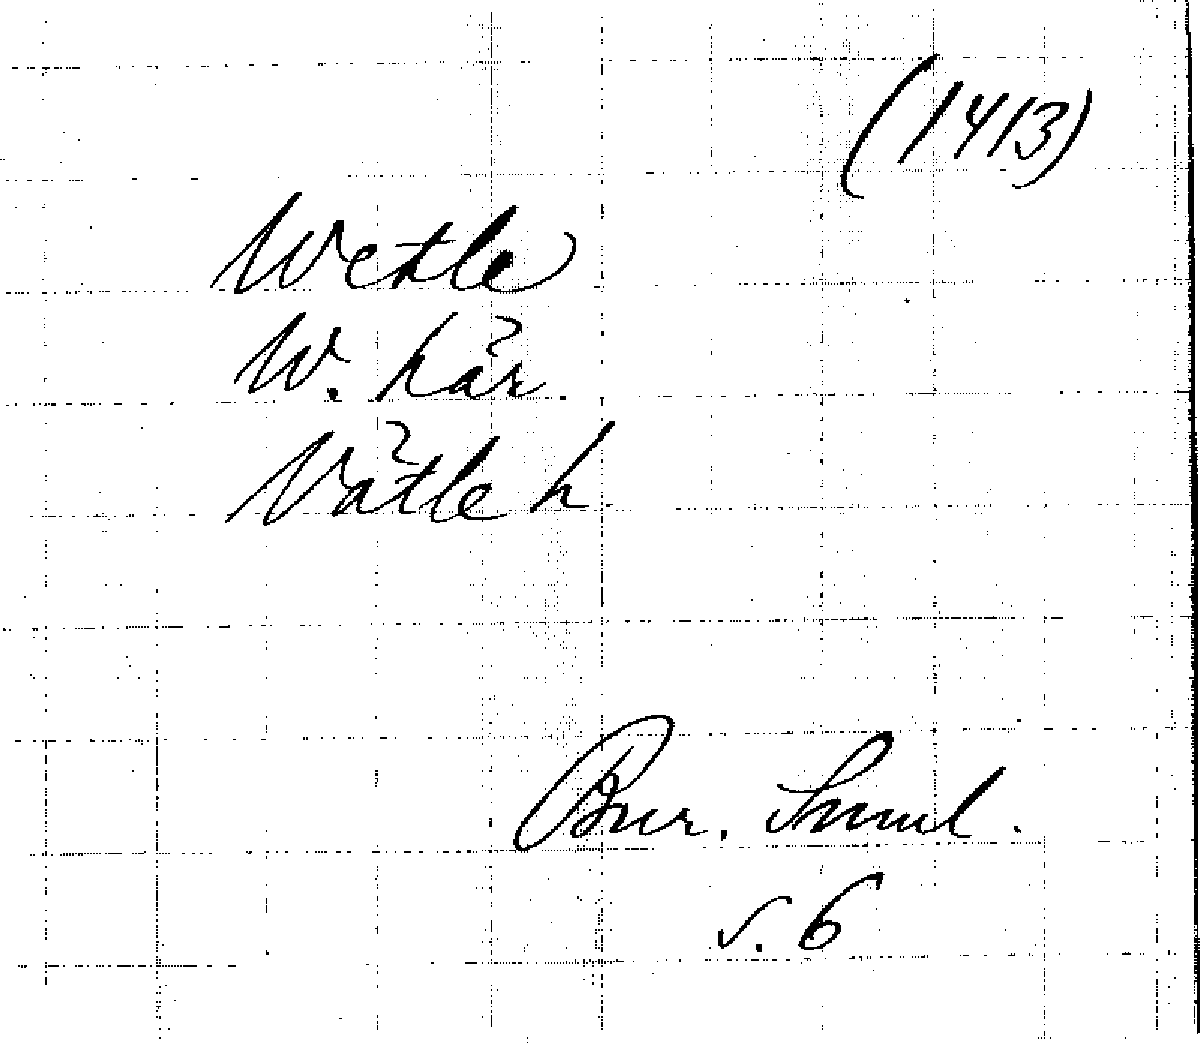 (1413)
Wetle
W. här.
Vätle h.
Bur. Suml.
s. 6